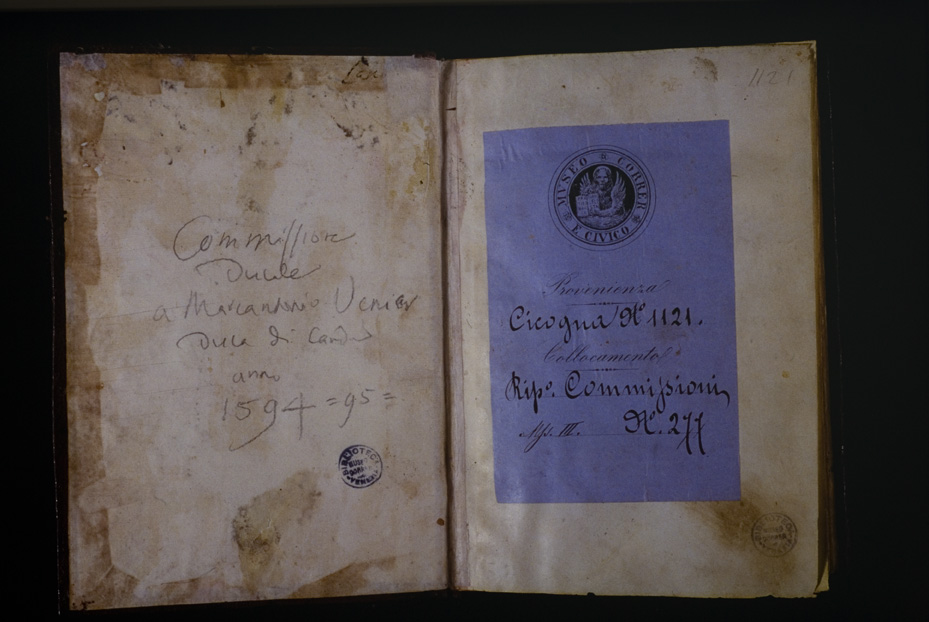 Commissione
Ducale
a Marcantonio Venier
Duca di Candia
anno
1594=95=
BIBLIOTECA
VENEZIA
1121
MVSEO CORRER
E CIVICO
Provenienza
Cicogna Nº 1121.
Collocamento
Ripº. Commissioni
Mss. III. Nº. 277